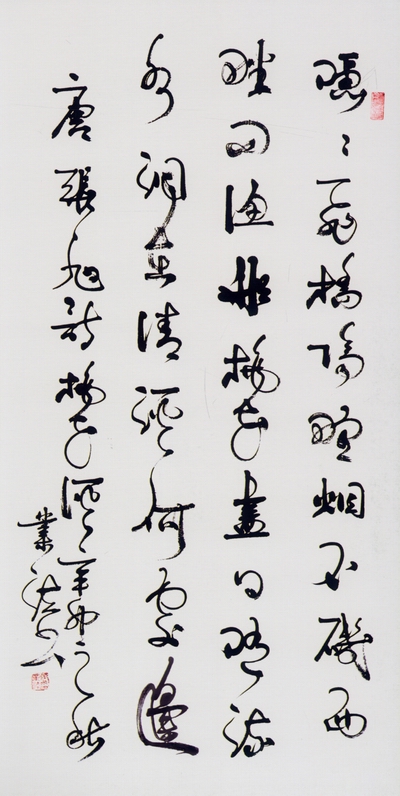 隱隱飛橋隔野烟石磯西
畔問漁船桃花盡日隨流
水洞在清溪何處邊
唐張旭詩桃花溪辛卯之秋
業